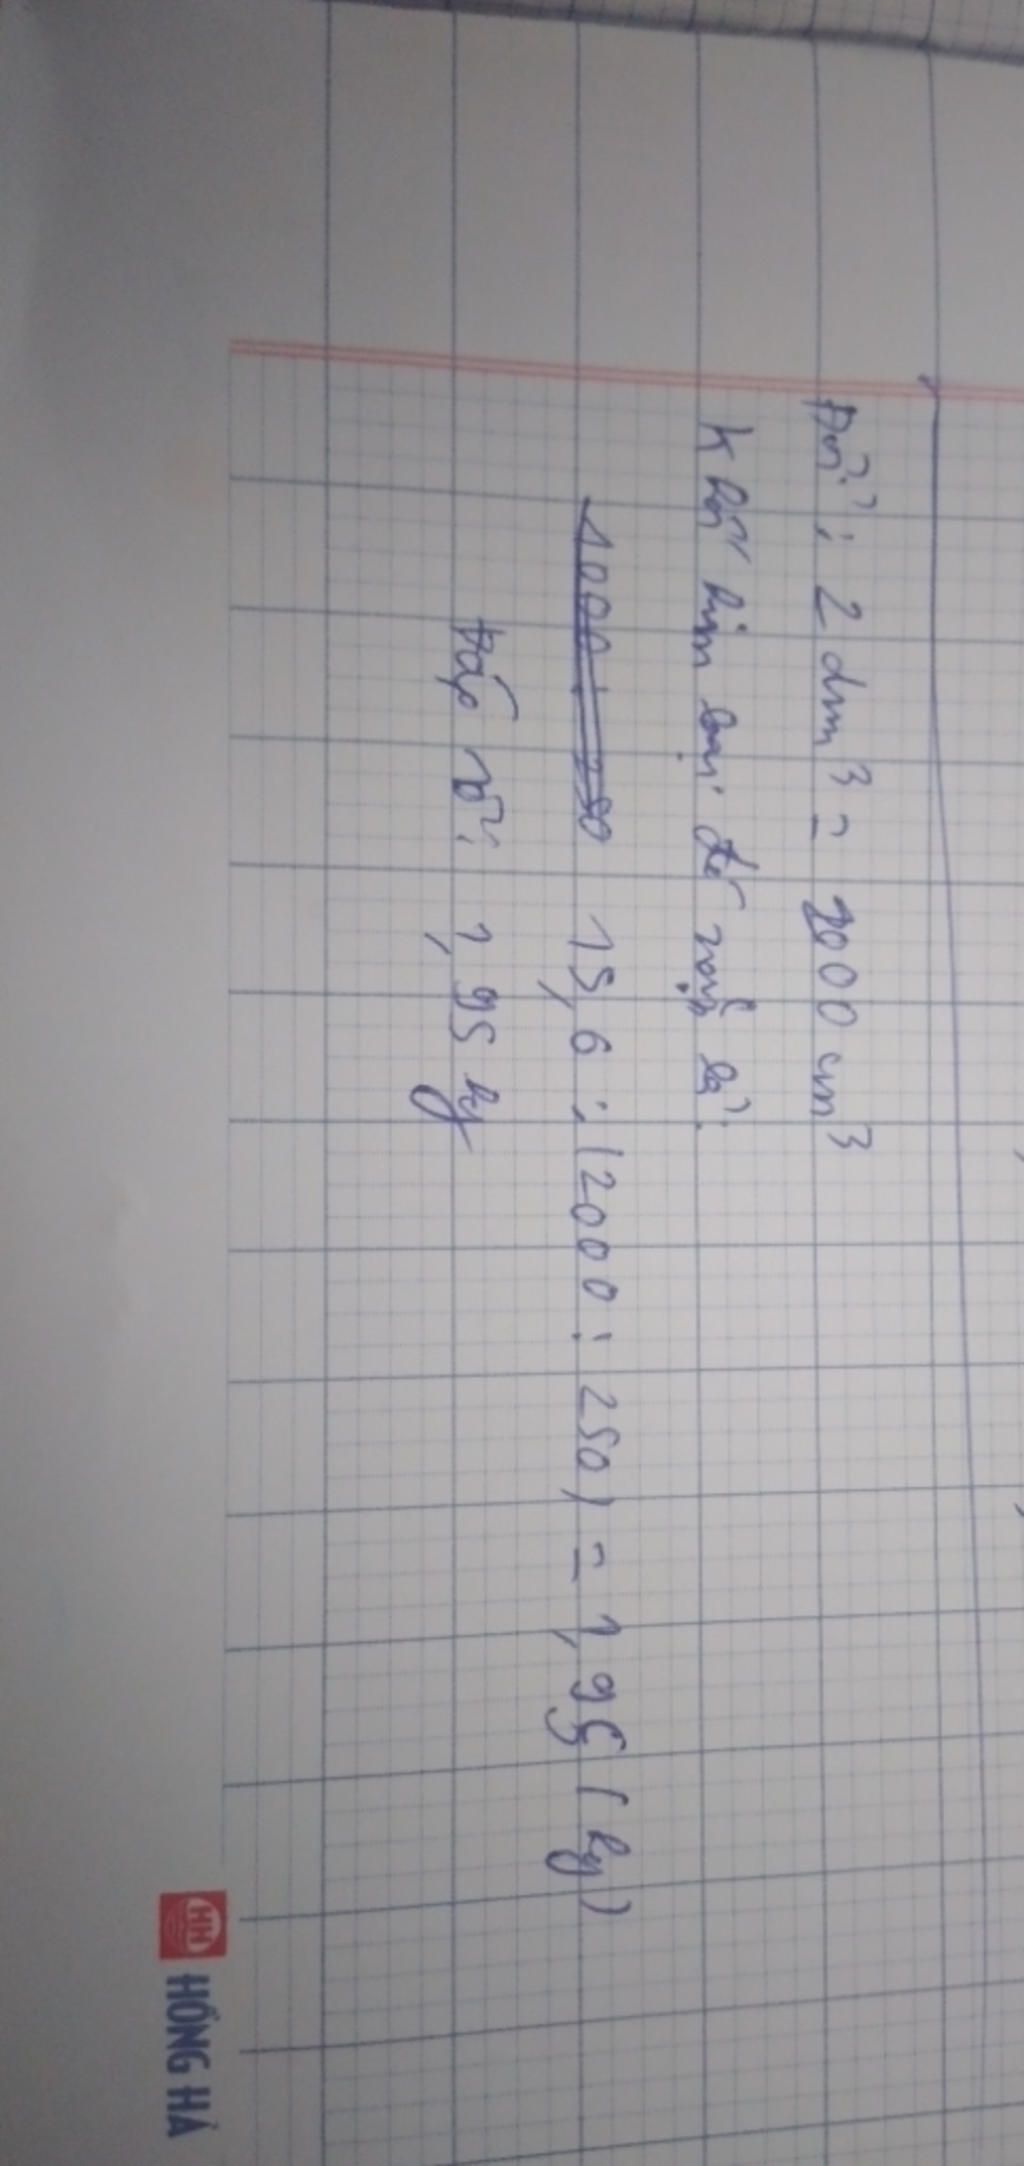 Đổi : 2 dm³ = 2000 cm³
Khối kim loại đó nặng là :
1000 : 250 15,6 : (2000 : 250) = 1,95 (kg)
Đáp số : 1,95 kg
HỒNG HÀ